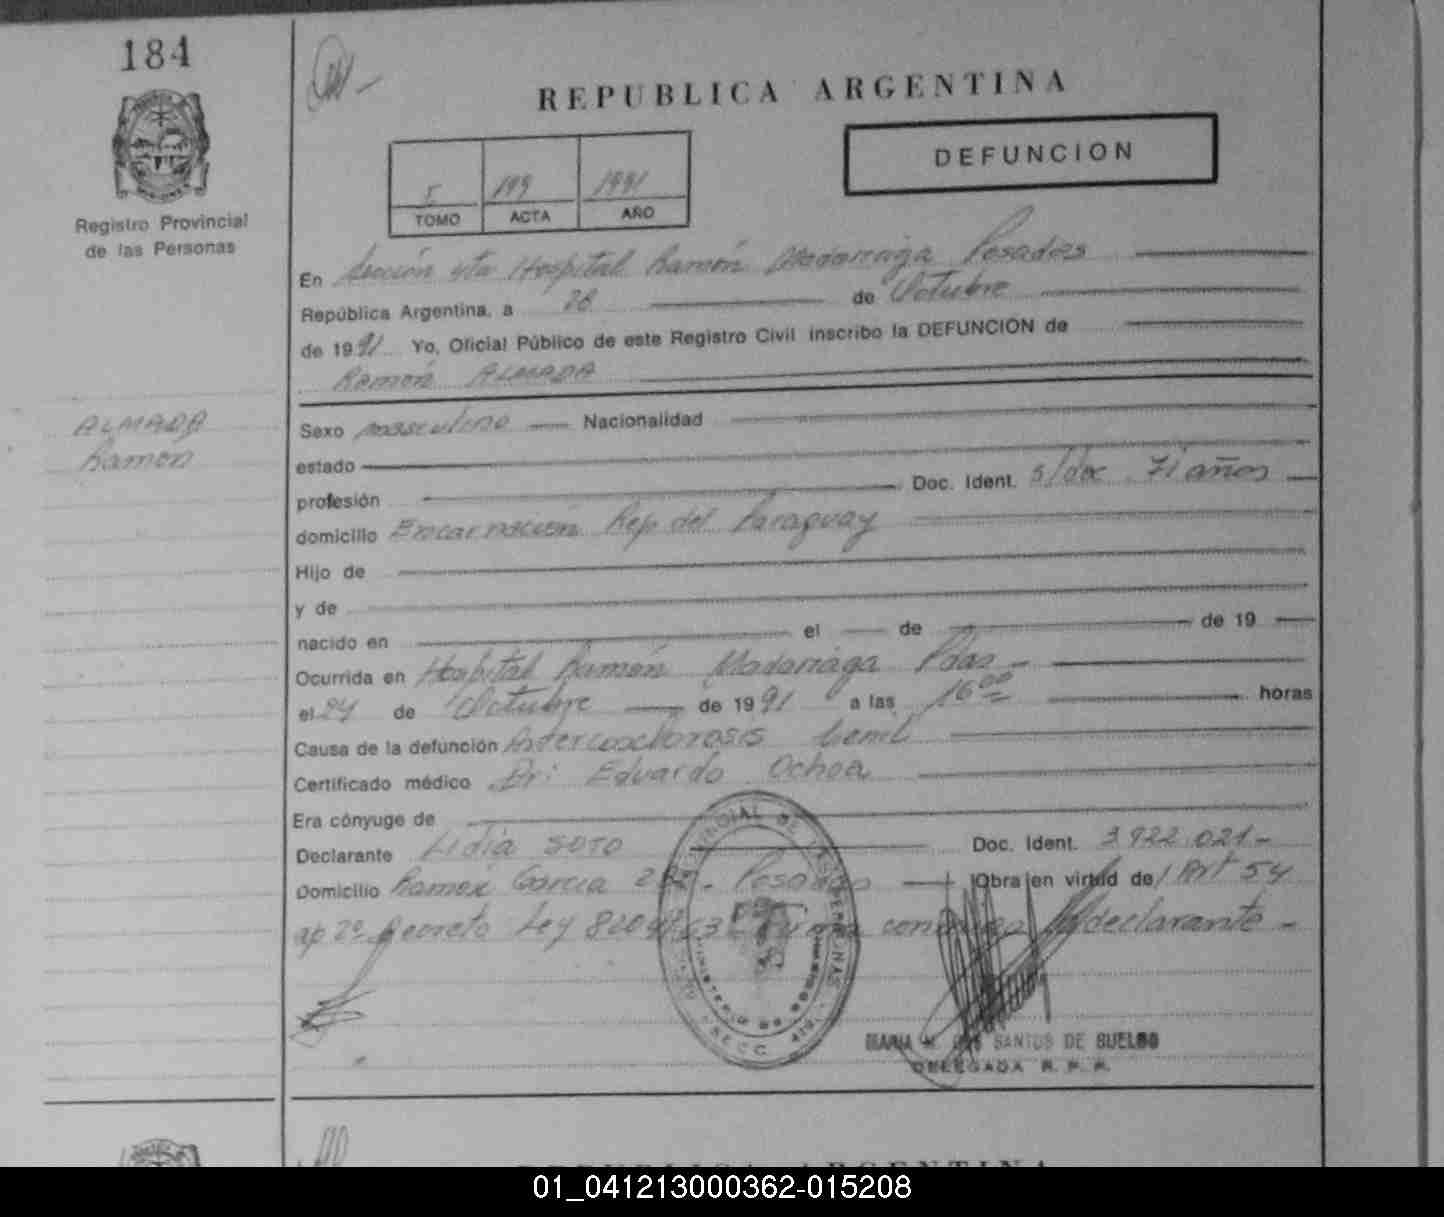 184
REPUBLICA ARGENTINA
DEFUNCION
I 199 1991
TOMO ACTA AÑO
Registro Provincial
de las Personas
En Sección 4ta Hospital Ramón Madarriaga Posadas
República Argentina, a 28 de Octubre
de 1991 Yo, Oficial Público de este Registro Civil inscribo la DEFUNCION de
Ramón ALMADA
ALMADA
Ramon
Sexo masculino Nacionalidad
estado
profesión Doc. Ident. s/doc. 71 años
domicilio Encarnación Rep del Paraguay
Hijo de
y de
nacido en el de de 19
Ocurrida en Hospital Ramón Madariaga Pdas -
el 24 de Octubre de 1991 a las 16 00 horas
Causa de la defunción
Certificado médico Dr: Eduardo Ochoa
Era cónyuge de
Declarante Lidia SOTO Doc. Ident. 3.922.021-
Domicilio Ramon Garcia Posadas Obra en virtud del Art 54
ap 2º Decreto Ley 8204/63 Firma conmigo declarante -
SANTOS DE BUELBO
DELEGADA R. P. P.
REPUBLICA ARGENTINA
01_041213000362-015208